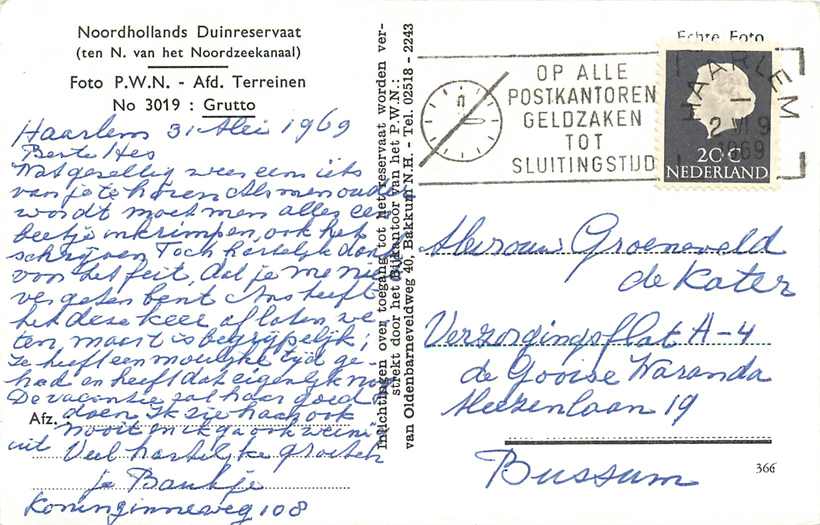 Noordhollands Duinreservaat
(ten N. van het Noordzeekanaal)
Foto P.W.N. - Afd. Terreinen
No 3019 : Grutto
Haarlem 31 Mei 1969
Beste Hes
Wat gezellig weer eens iets
van je te horen Als men ouder
wordt moet men alles een
beetje inkrimpen, ook het
schrijven Toch hartelijk dank
voor het feit, dat je me niet
vergeten bent Ans heeft
het deze keer af laten we
ten, maar is begrijpelijk,
ze heeft een moeilijke tijd ge-
had en heeft dat eigenlijk nog
De vacantie zal haar goed
doen. Ik zie haar ook
nooit en ik ga ook weinig
uit Veel hartelijke groeten
je Baukje
Koninginneweg 108
Afz.
Inlichtingen over toegang tot het reservaat worden ver-
strekt door het Bijkantoor van het P.W.N.:
van Oldenbarneveldweg 40, Bakkum N.H. - Tel. 02518 - 2243
Echte Foto
OP ALLE
POSTKANTOREN
GELDZAKEN
TOT
SLUITINGSTIJD
HAARLEM
2 VI 9
1969
20 C
NEDERLAND
Mevrouw Groeneveld
de Kater
Verzorgingsflat A-4
de Gooise Waranda
Meezenlaan 19
Bussum
366